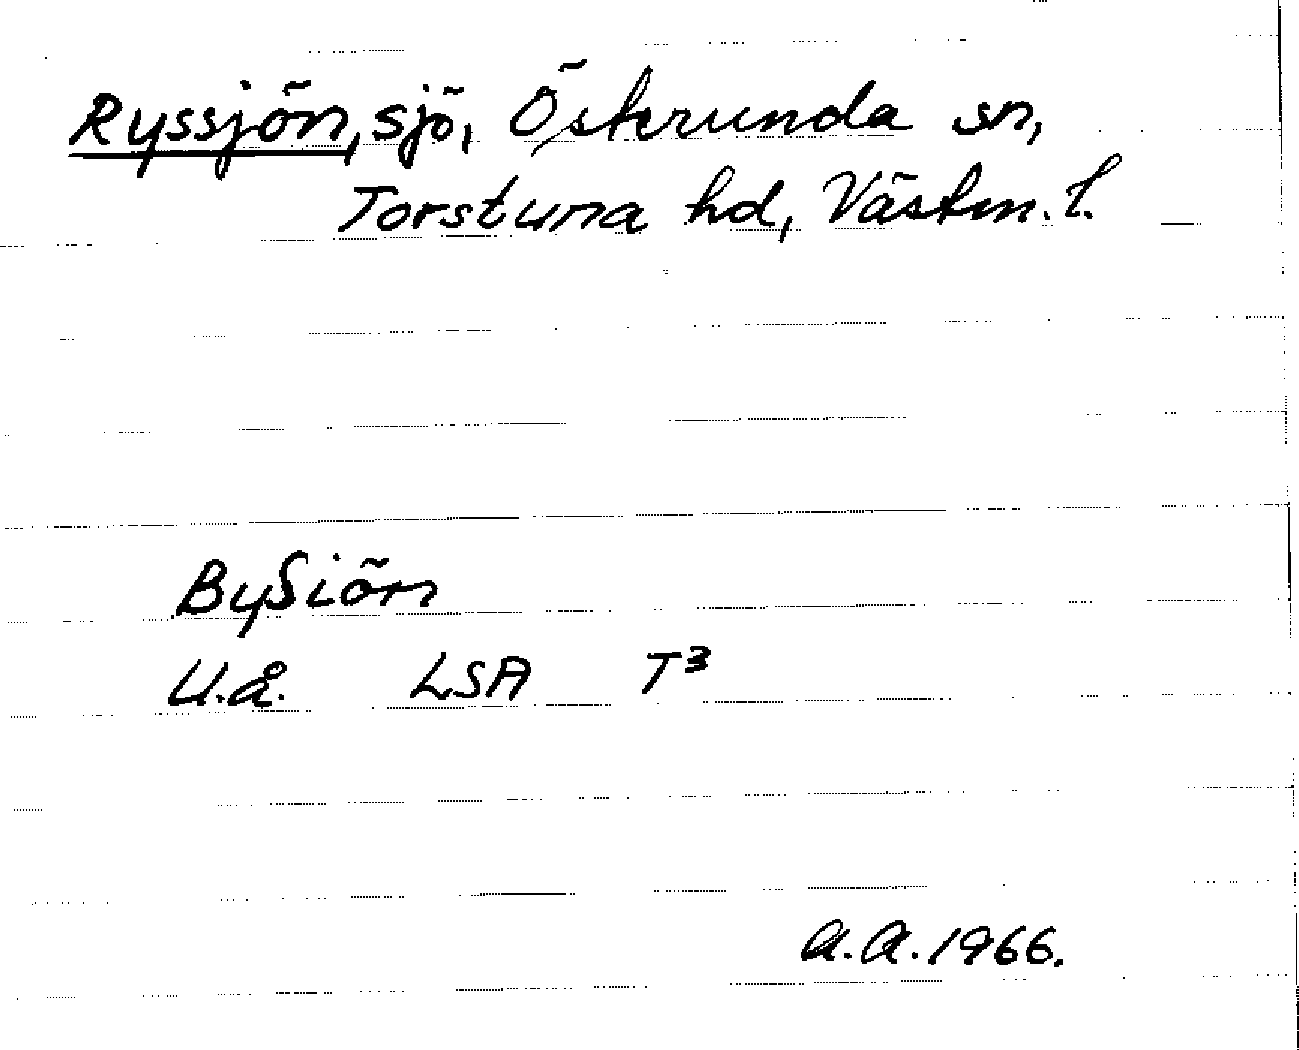 Ryssjön, sjö, Österunda sn,
Torstuna hd, Västm. l.
BySiön
U.å. LSA T³
A.A. 1966.